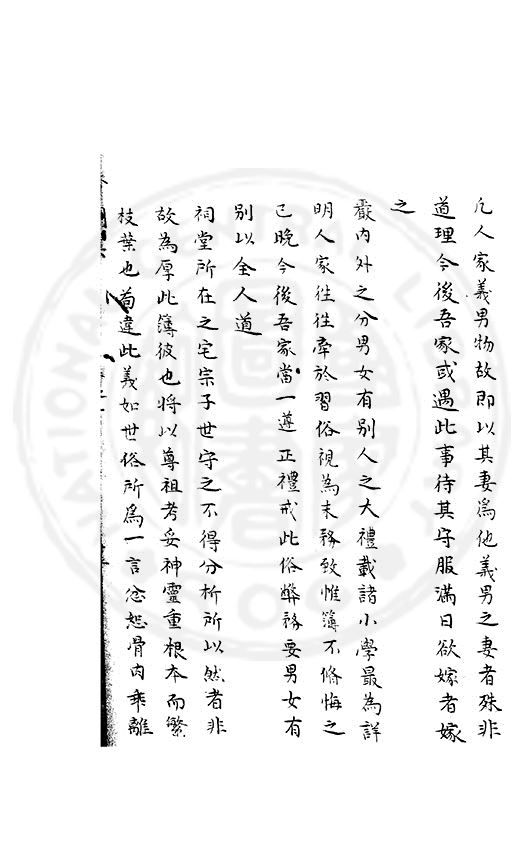 凡人家義男物故即以其妻爲他義男之妻者殊非
道理今後吾家或遇此事待其守服滿日欲嫁者嫁
之
嚴內外之分男女有別人之大禮載諸小學最為詳
明人家徃徃牽於習俗視為末務致惟簿不脩悔之
已晚今後吾家當一遵正禮戒此俗弊務要男女有
別以全人道
祠堂所在之宅宗子世守之不得分析所以然者非
故為厚此簿彼也將以尊祖考妥神靈重根本而繁
枝葉也苟違此義如世俗所爲一言忿恕骨肉乖離